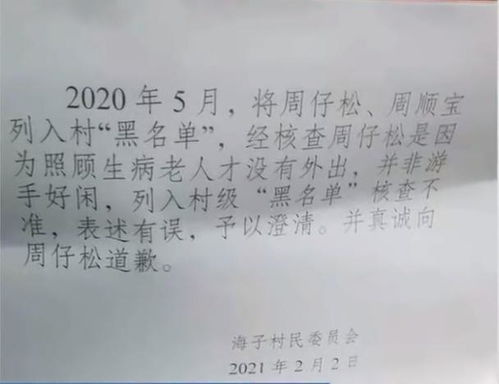 2020年5月，将周仔松、周顺宝
列入村“黑名单”，经核查周仔松是因
为照顾生病老人才没有外出，并非游
手好闲，列入村级“黑名单”核查不
准，表述有误，予以澄清。并真诚向
周仔松道歉。
海子村民委员会
2021年2月2日